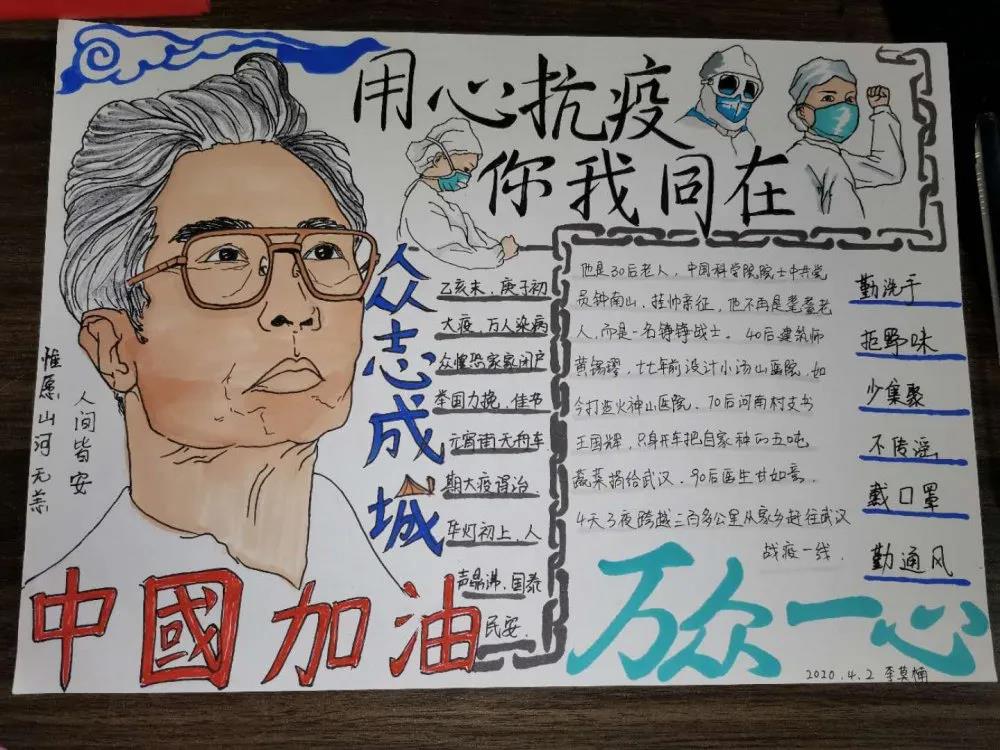 用心抗疫
你我同在
众志成城
惟愿山河无恙
人间皆安
乙亥末，庚子初
大疫，万人染病
众惶恐家家闭户
举国力挽，佳节
元宵街无舟车
期大疫得治
华灯初上，人
声鼎沸，国泰
民安．
他是30后老人，中国科学院院士中共党
员钟南山，挂帅亲征，他不再是耄耋老
人，而是一名铮铮战士。40后建筑师
黄锡璆，十七年前设计小汤山医院，如
今打造火神山医院．70后河南村支书
王国辉，只身开车把自家种的五吨
蔬菜捐给武汉．90后医生甘如意．
4天3夜跨越三百多公里从家乡赶往武汉
战疫一线．
勤洗手
拒野味
少集聚
不传谣
戴口罩
勤通风
中國加油
万众一心
2020.4.2 李莫楠